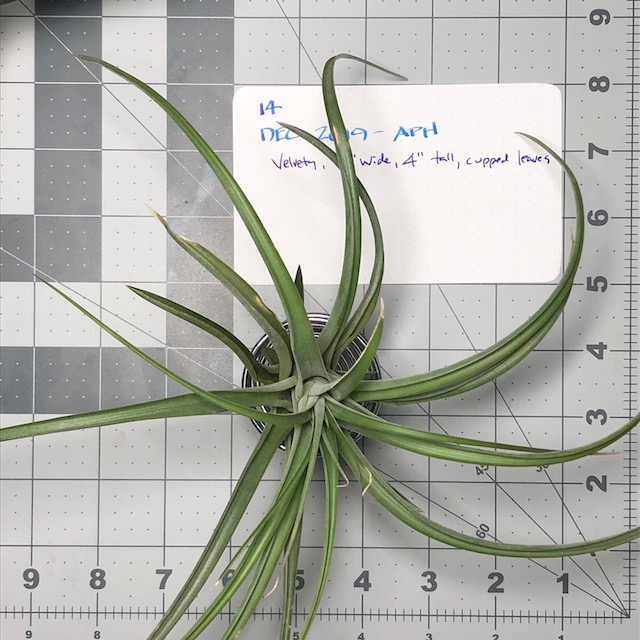 14
DEC 2019 - APH
Velvety, wide, 4" tall, cupped leaves
9
8
7
6
5
4
3
2
45
60
9 8 7 6 5 4 3 2 1